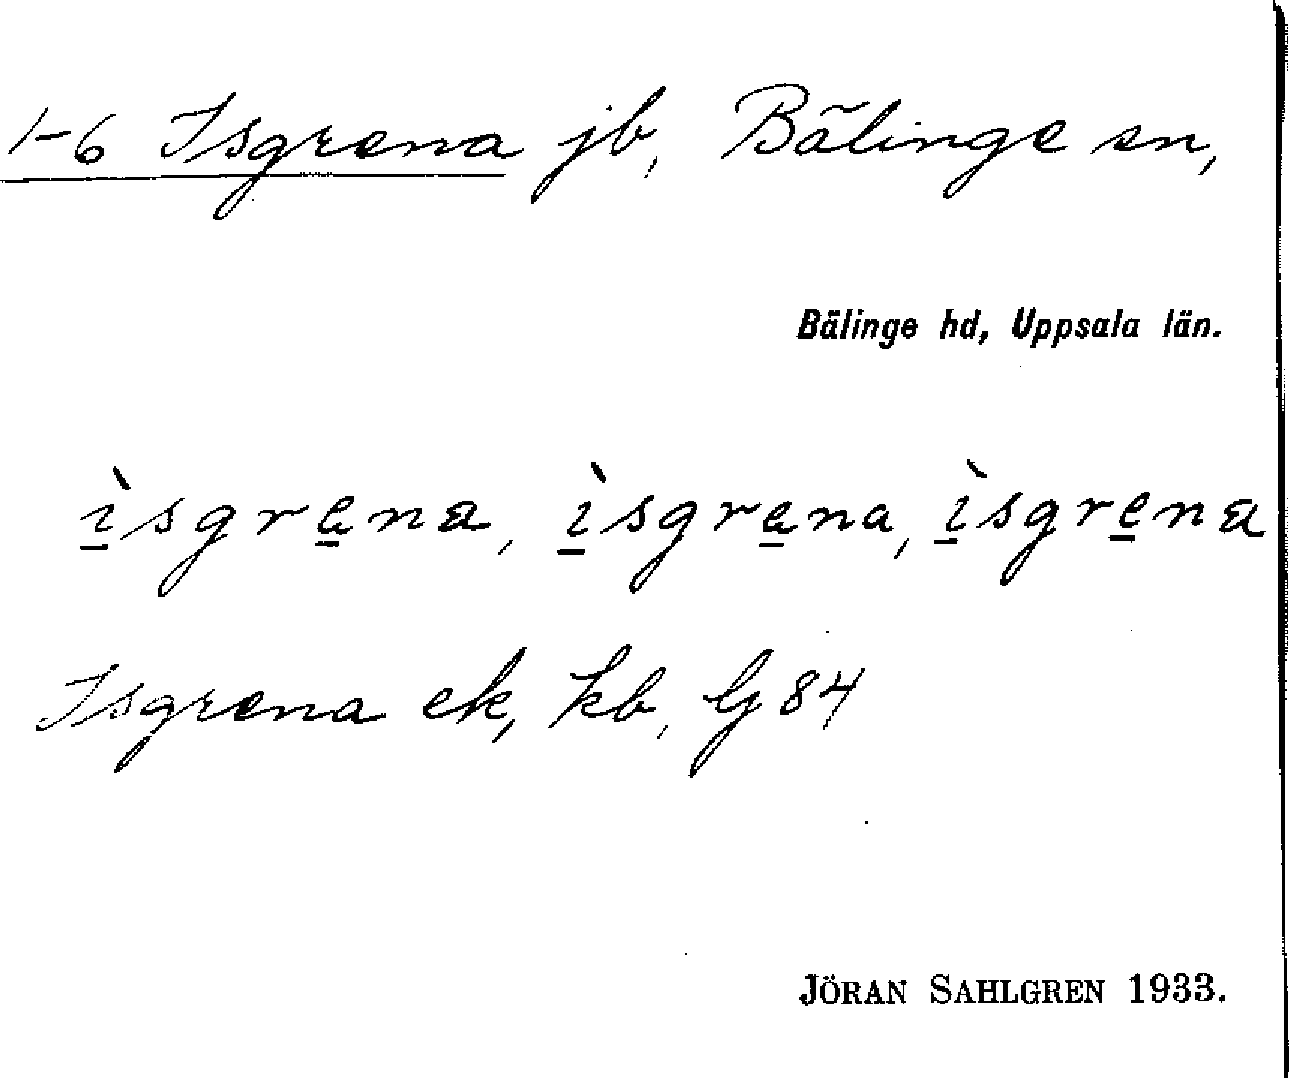 1-6 Isgrena jb, Bälinge sn,
Bälinge hd, Uppsala län.
ı̲̀sgre̲na, ı̲̀sgra̲na, ı̲̀sgre̲na
Isgrena ek, kb, Lj 84
JÖRAN SAHLGREN 1933.